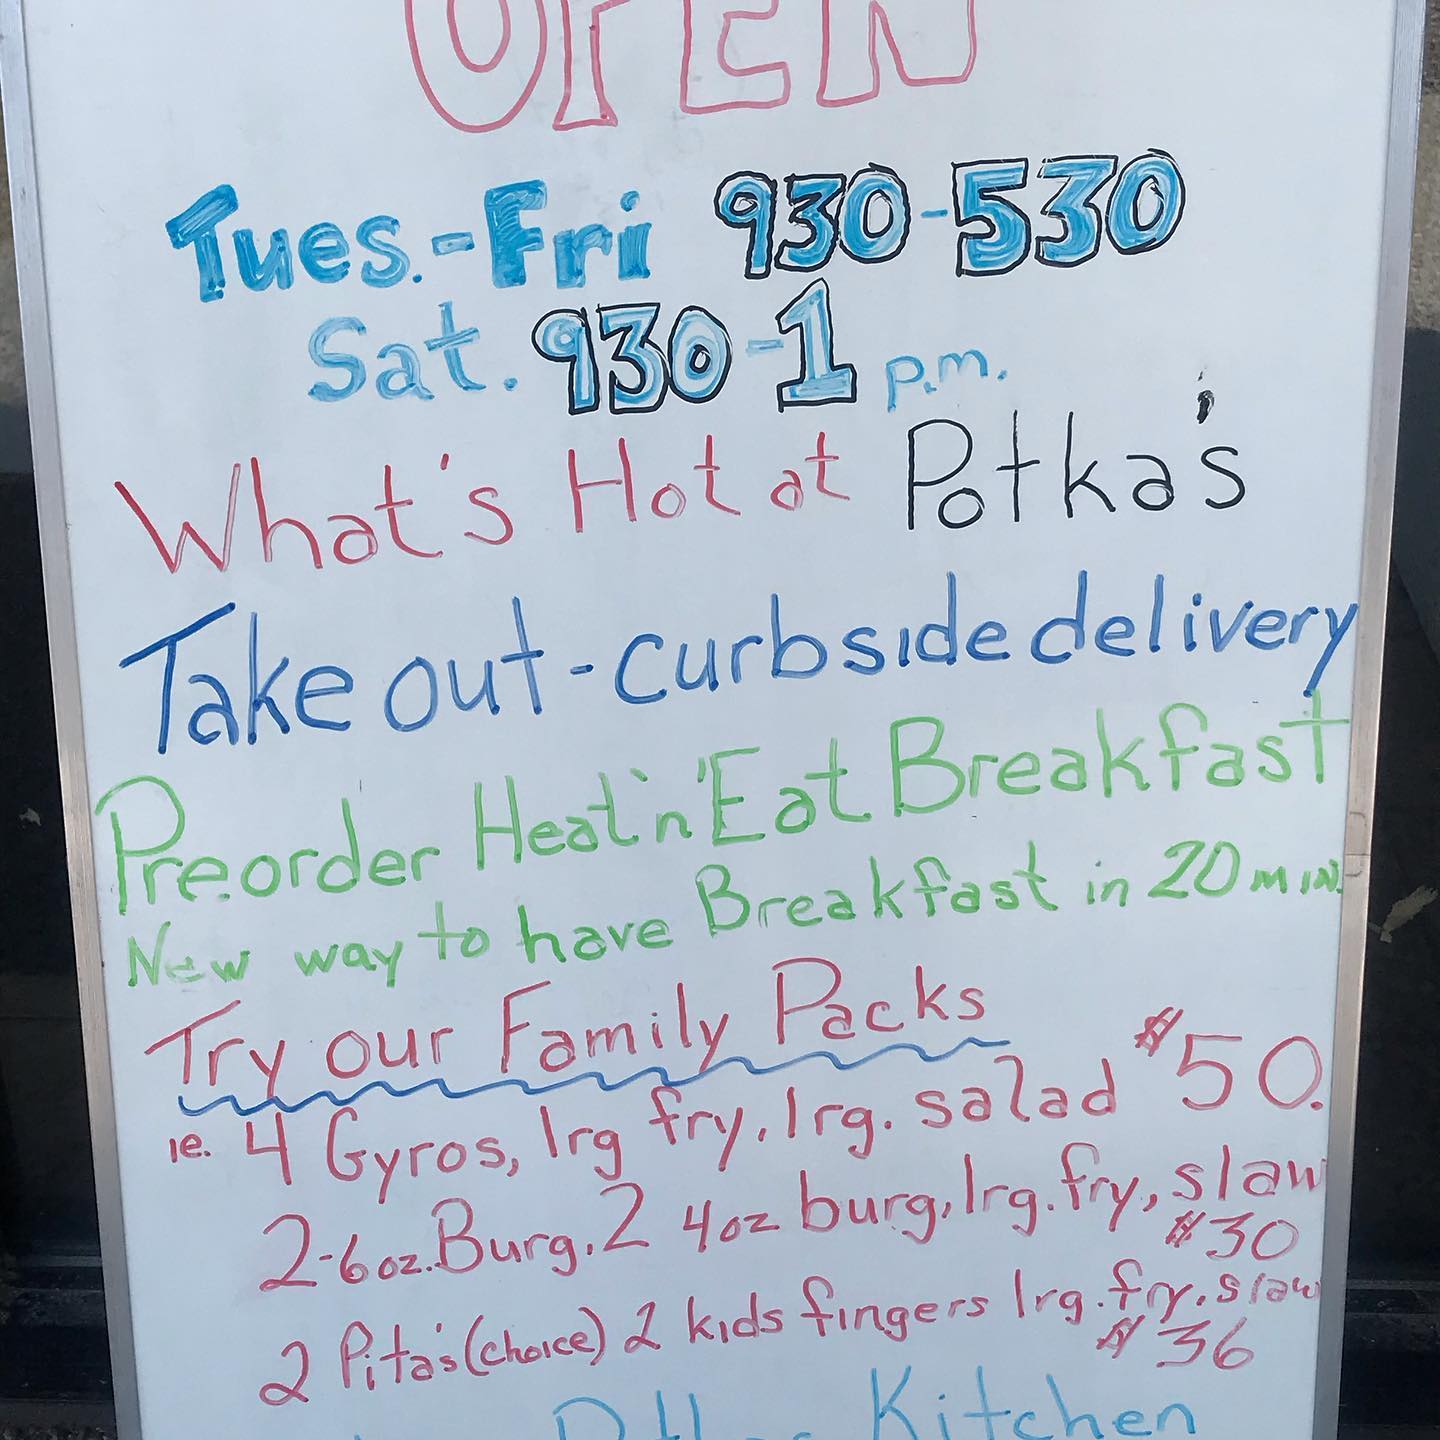 OPEN
Tues.-Fri 930-530
Sat. 930-1 p.m.
What's Hot at Potka's
Take out-curbside delivery
Preorder Heat'n'Eat Breakfast
New way to have Breakfast in 20 min.
Try our Family Packs
ie. 4 Gyros, lrg fry, lrg. salad $50.
2-6oz. Burg, 2 4oz burg, lrg. fry, slaw
$30
2 Pita's (choice) 2 kids fingers lrg. fry, slaw
$36
Kitchen